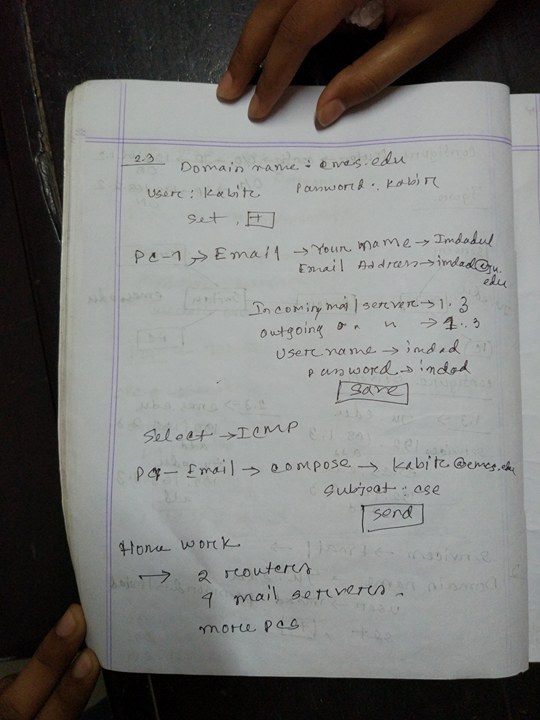 2.3
Domain name: emcs.edu
User: Kabir Password: Kabir
set, +
PC-1 → Email → Your name → Imdadul
Email Address → imdad@ju.edu
Incoming mail server → 1.3
outgoing " " → 1.3
User name → imdad
password → imdad
save
Select → ICMP
PC - Email → compose → kabir@emcs.edu
Subject: cse
send
Home work
→ 2 routers
4 mail servers.
more pcs